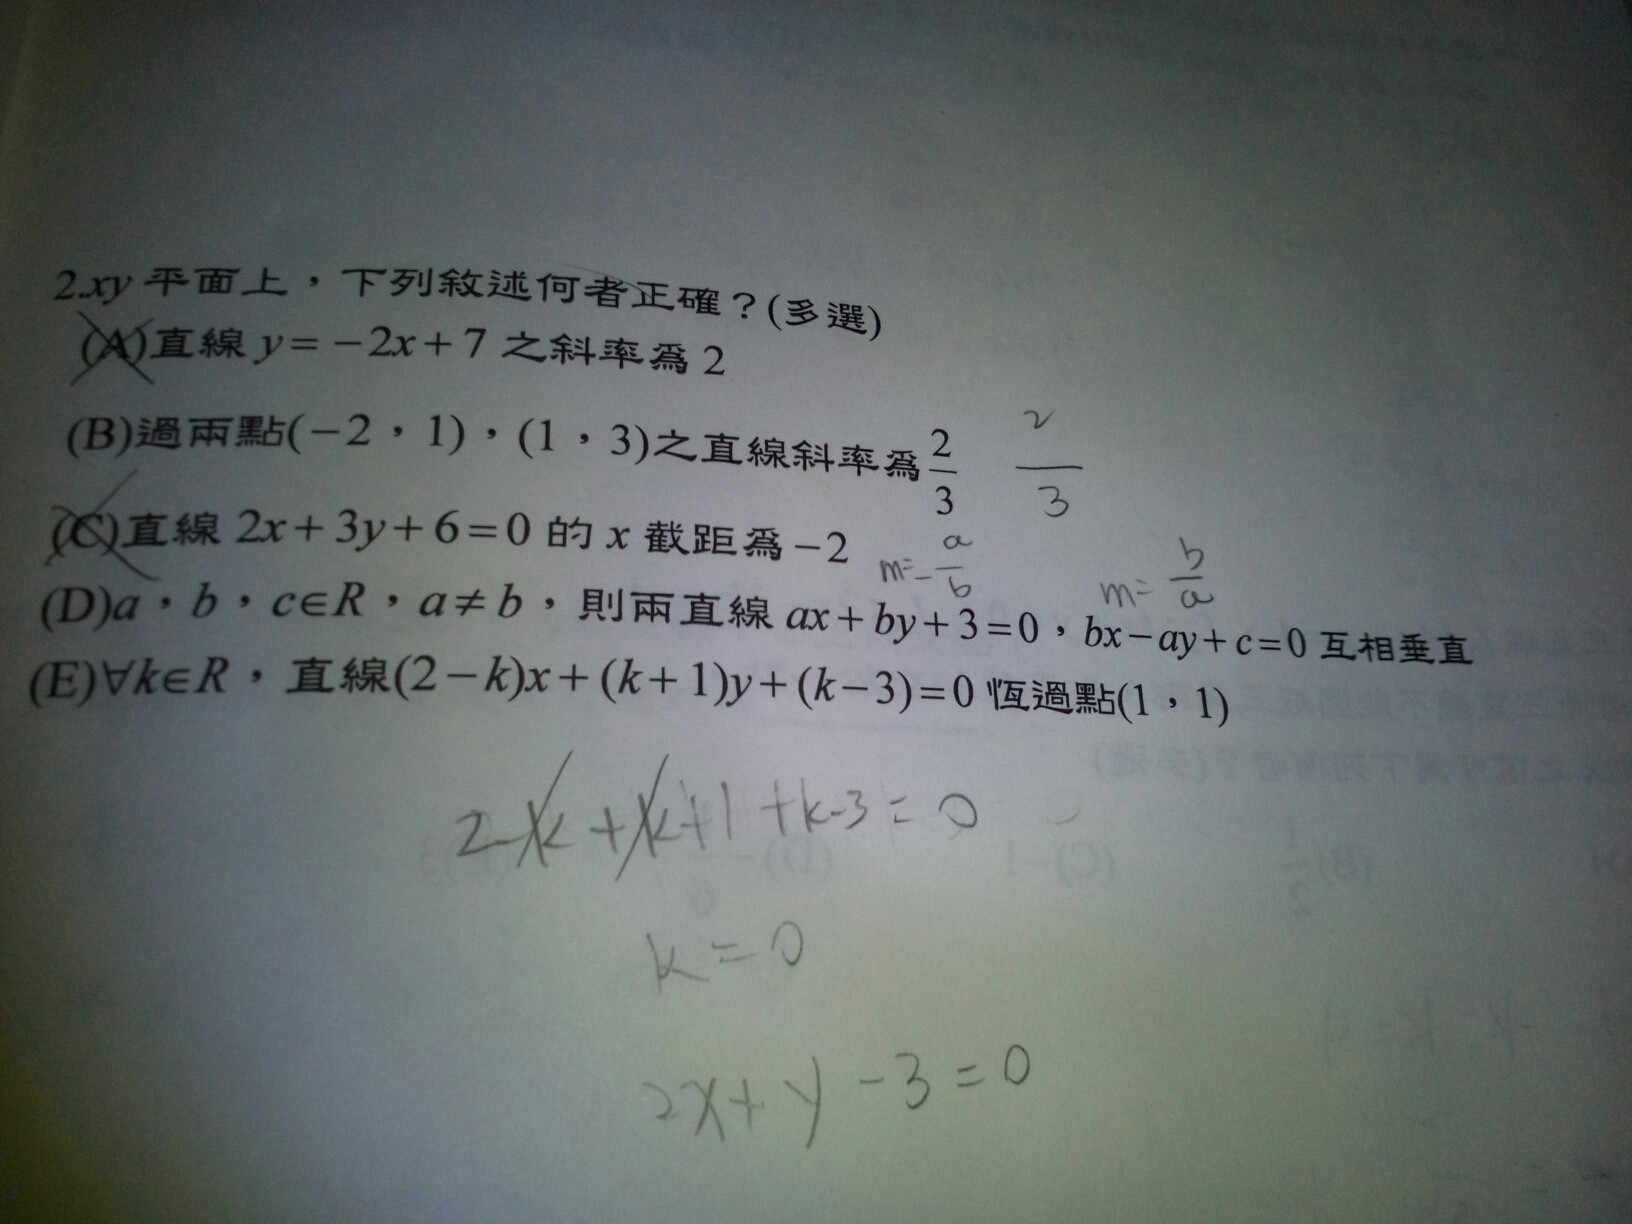 2.xy 平面上，下列敘述何者正確？(多選)
(A)直線 y=−2x+7 之斜率為 2
(B)過兩點(−2，1)，(1，3)之直線斜率為 2/3 2/3
(C)直線 2x+3y+6=0 的 x 截距為 −2
m=-a/b m=b/a
(D)a，b，c∈R，a≠b，則兩直線 ax+by+3=0，bx−ay+c=0 互相垂直
(E)∀k∈R，直線(2−k)x+(k+1)y+(k−3)=0 恆過點(1，1)
2-k+k+1+k-3=0
k=0
2x+y-3=0